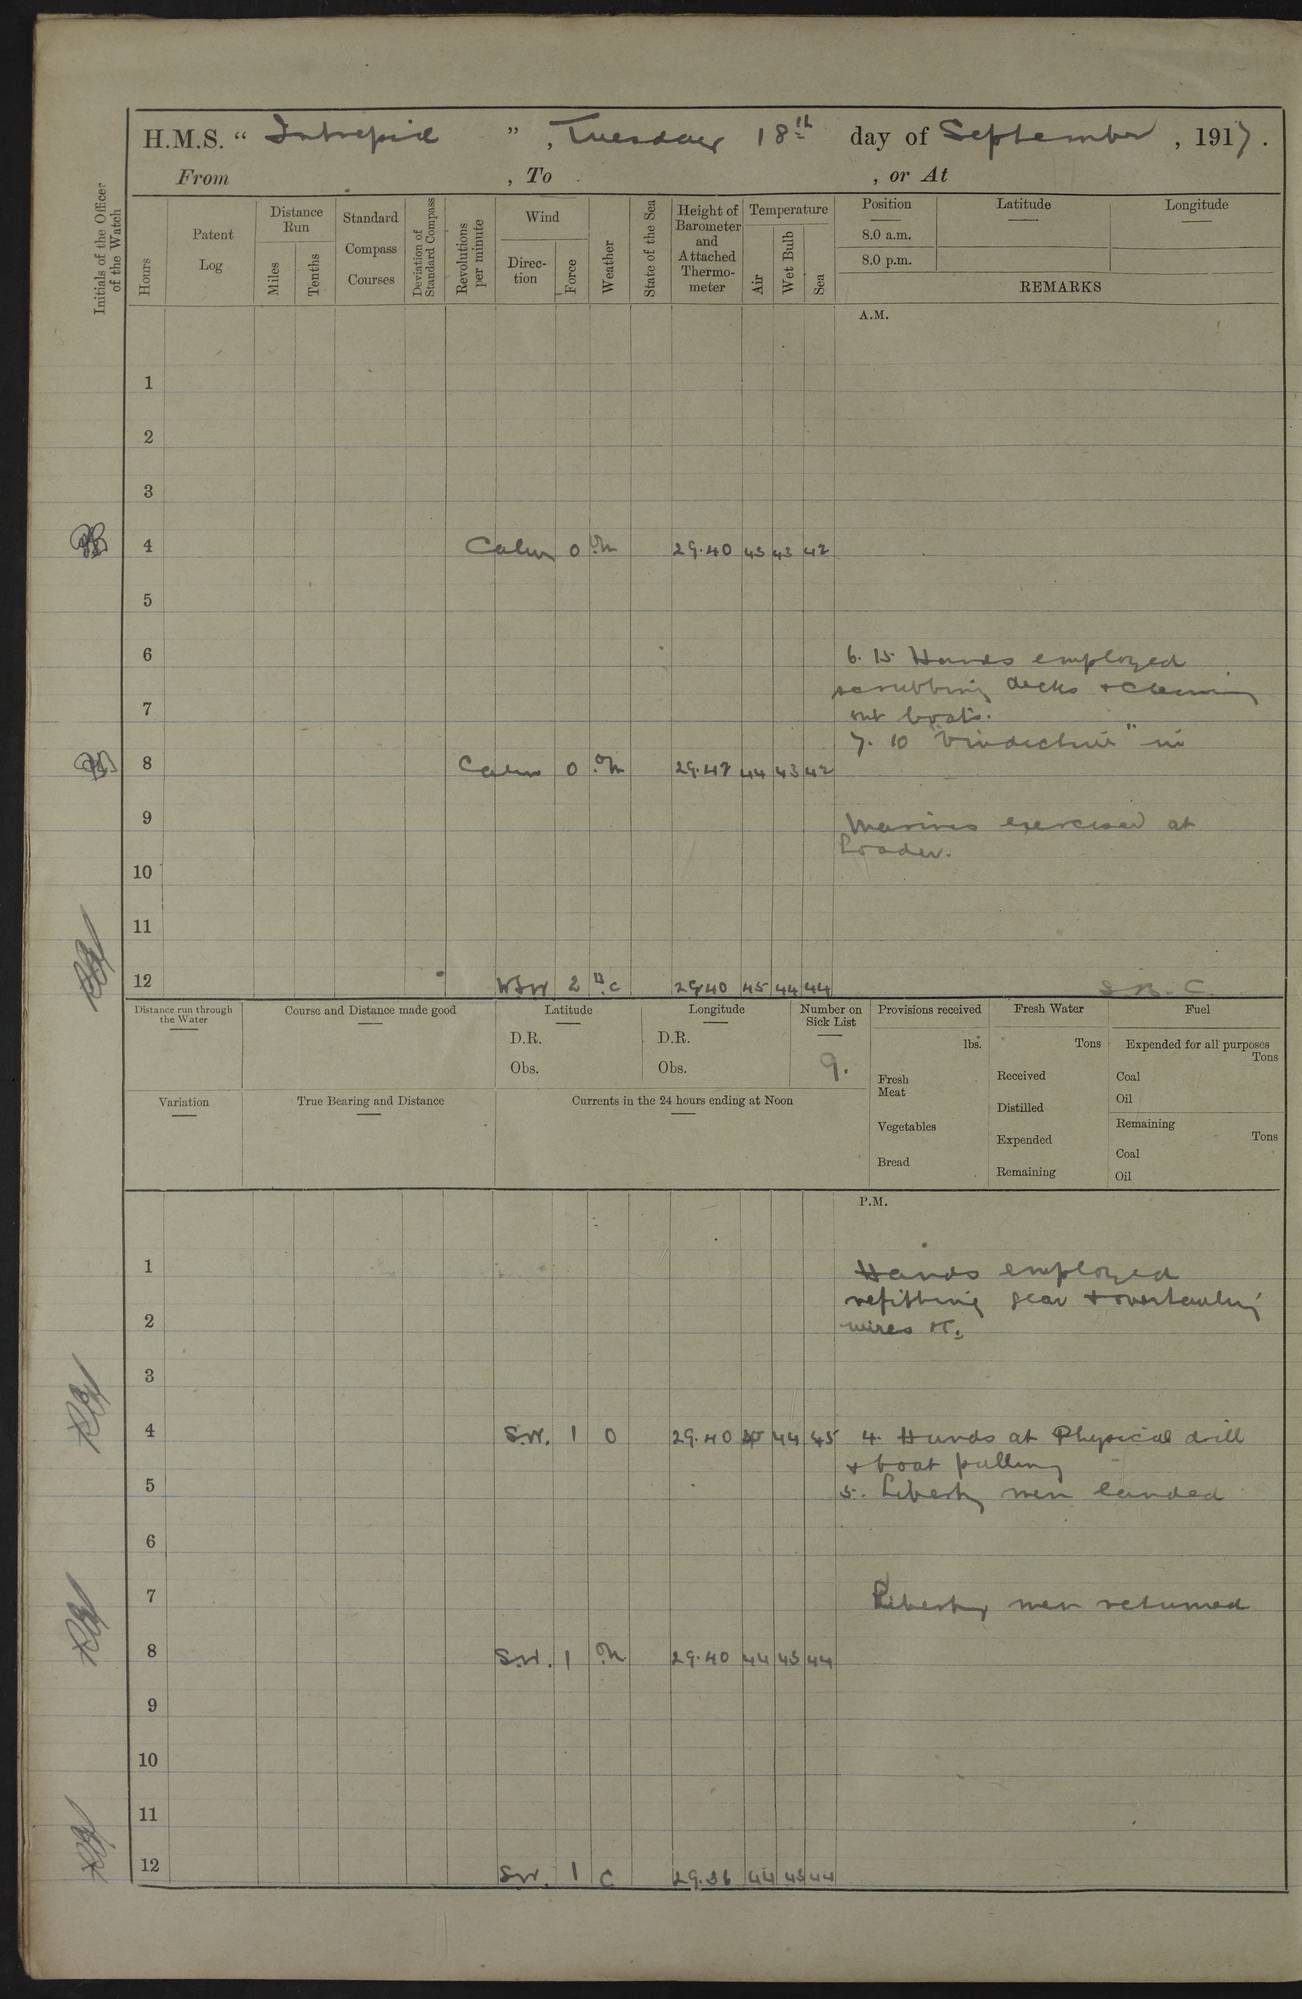 H.M.S. “ Intrepid ” , Tuesday 18th day of September , 1917 .
From , To , or At
Initials of the Officer of the Watch
Hours
Patent Log
Distance Run
Miles
Tenths
Standard Compass Courses
Deviation of Standard Compass
Revolutions per minute
Wind
Direc-tion
Force
Weather
State of the Sea
Height of Barometer and Attached Thermo-meter
Temperature
Air
Wet Bulb
Sea
Position Latitude Longitude
8.0 a.m.
8.0 p.m.
REMARKS
A.M.
1
2
3
4 Calm 0 o.m 29.40 43 43 42
5
6 6. 15 Hands employed
scrubbing decks & cleaning
7 out boats.
7. 10 "Vindictive" in
8 Calm 0 o.m 29.42 44 43 42
9 Marines exercised at
Loader.
10
11
12 WSW 2 b.c 29.40 45 44 44
S. B. C.
Distance run through the Water
Course and Distance made good
Latitude
D.R.
Obs.
Longitude
D.R.
Obs.
Number on Sick List
9.
Provisions received
lbs.
Fresh Meat
Vegetables
Bread
Fresh Water
Tons
Received
Distilled
Expended
Remaining
Fuel
Expended for all purposes
Tons
Coal
Oil
Remaining
Tons
Coal
Oil
Variation
True Bearing and Distance
Currents in the 24 hours ending at Noon
P.M.
1 Hands employed
refitting gear & overhauling
2 wires &c.
3
4 S.W. 1 0 29.40 45 44 45 4. Hands at Physical drill
& boat pulling
5 5. Liberty men landed
6
7 Liberty men returned
8 S.W. 1 o.m 29.40 44 43 44
9
10
11
12 S.W. 1 C 29.36 44 43 44